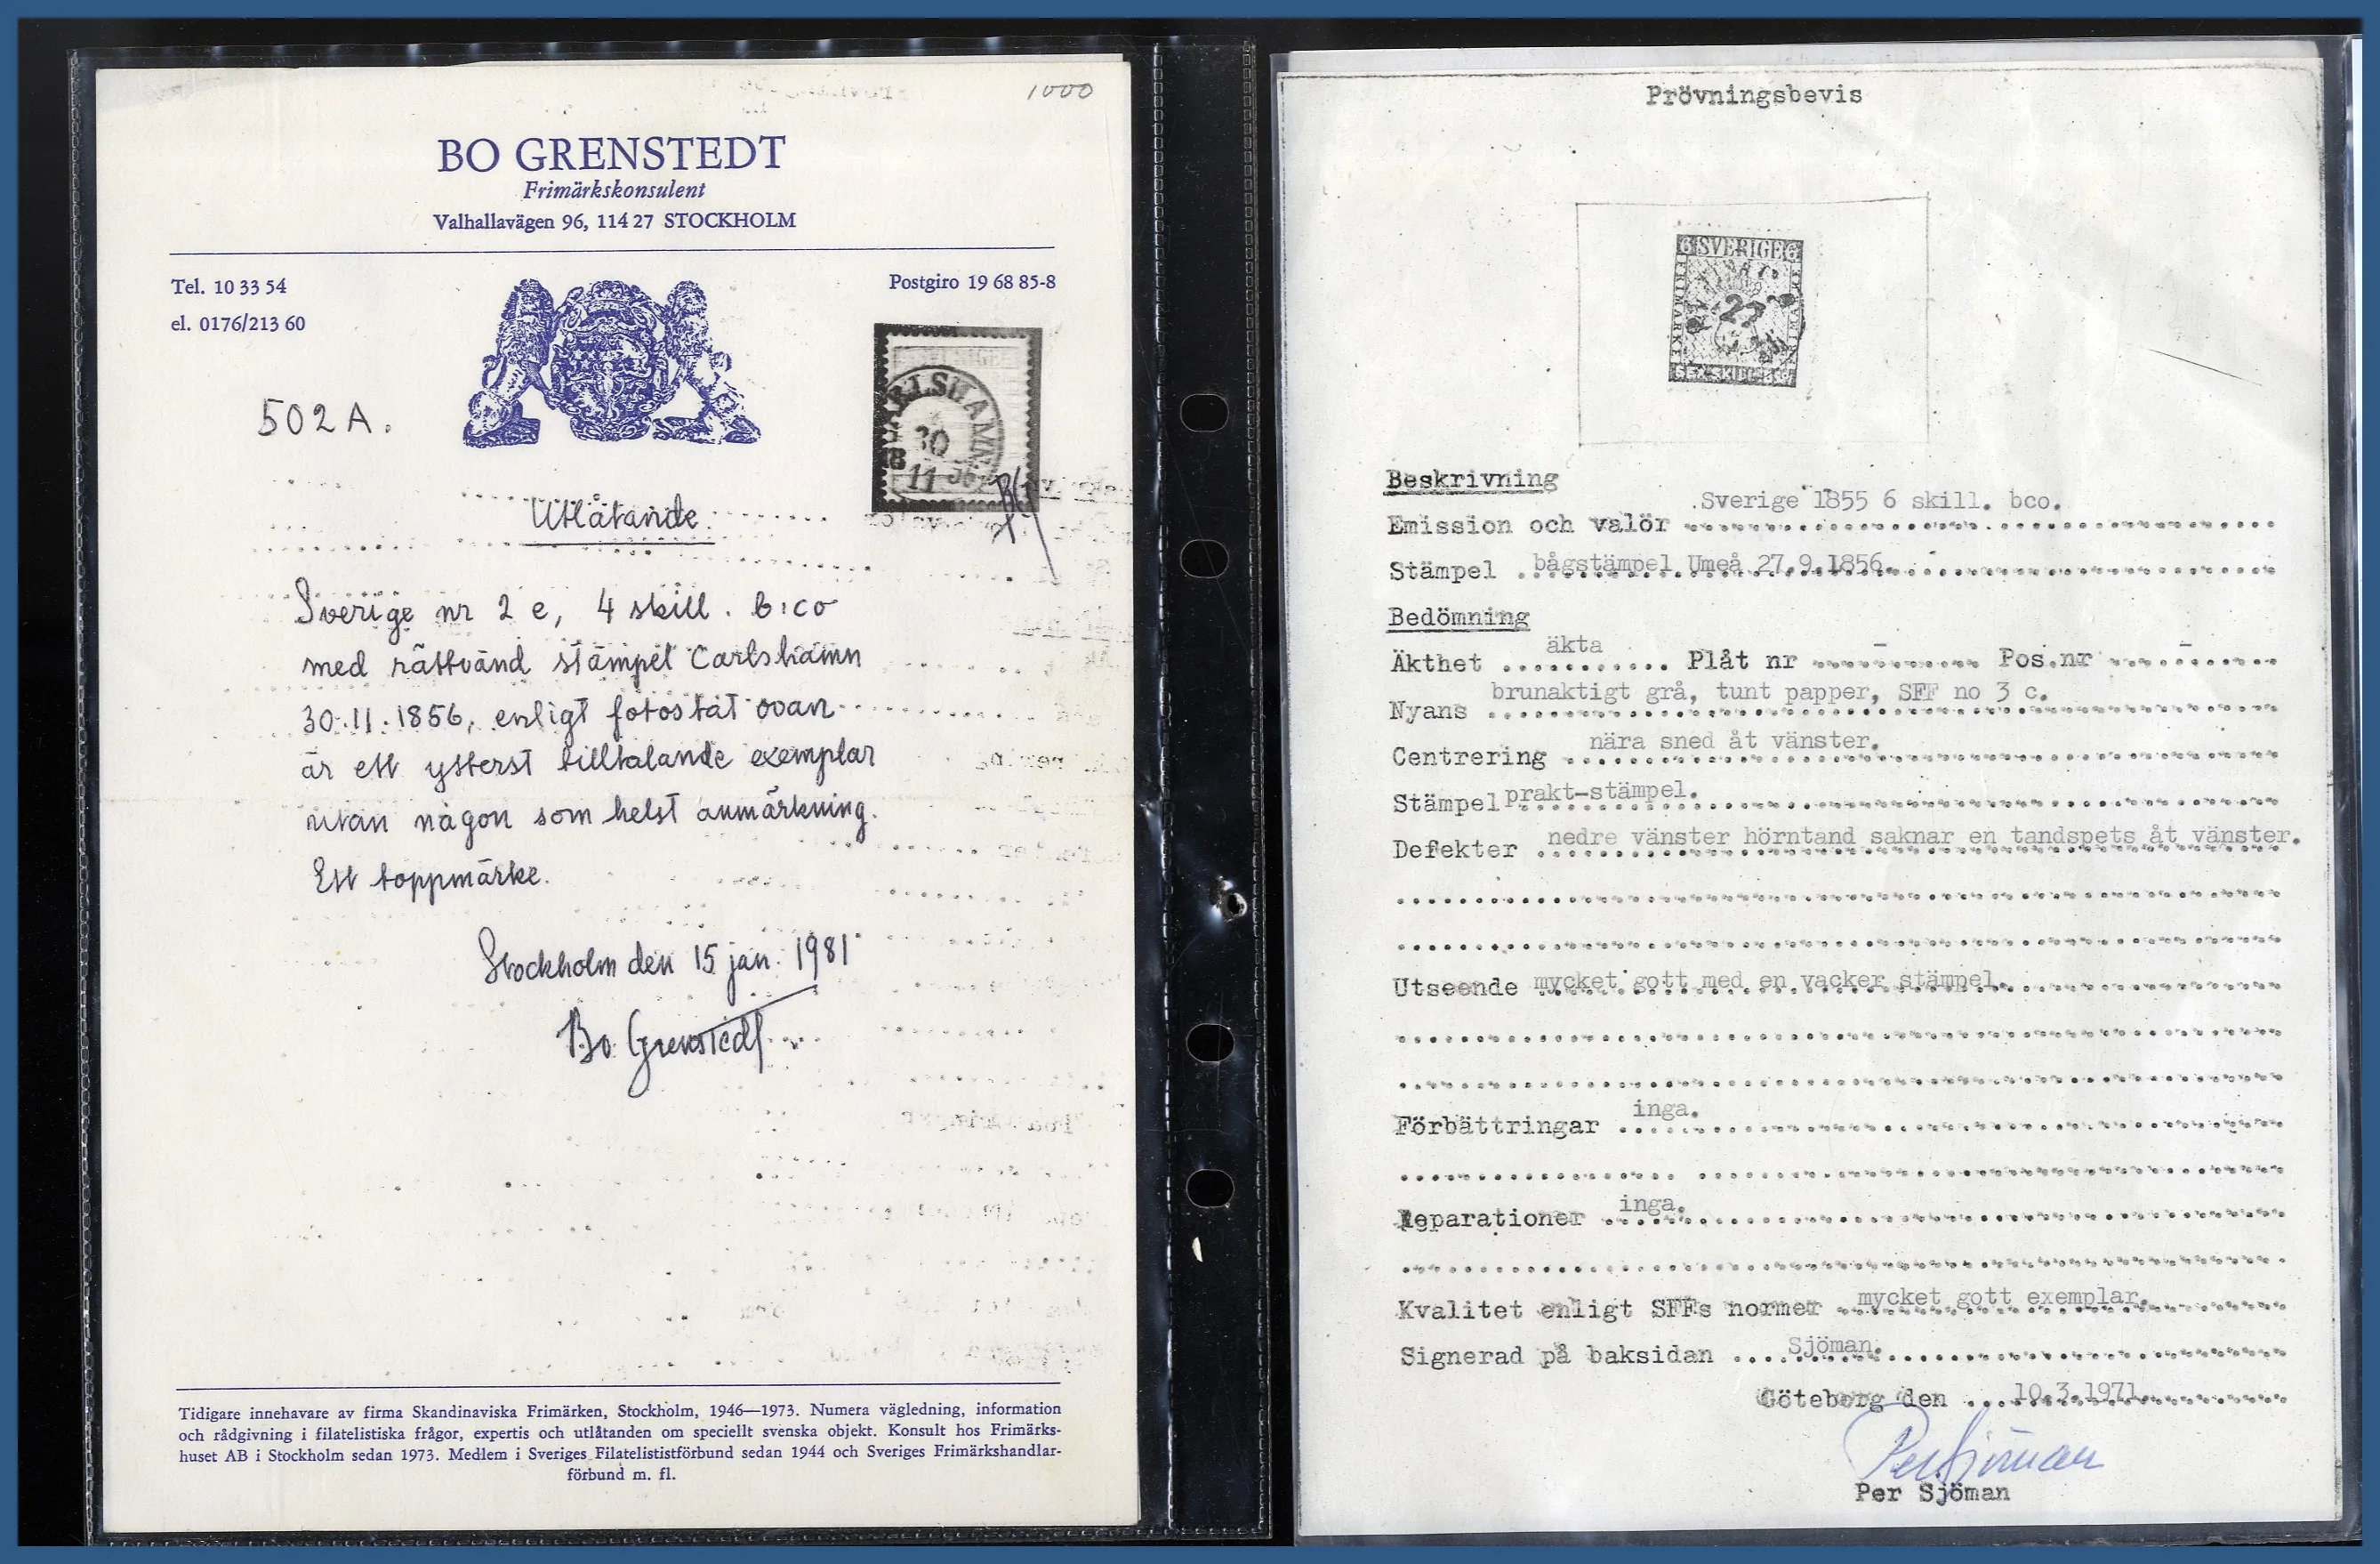 1000
BO GRENSTEDT
Frimärkskonsulent
Valhallavägen 96, 114 27 STOCKHOLM
Tel. 10 33 54
el. 0176/213 60
Postgiro 19 68 85-8
502 A.
30
11
Utlåtande.
Sverige nr 2 e, 4 skill. b:co
med rättvänd stämpel Carlshamn
30.11.1856, enligt fotostat ovan
är ett ytterst tilltalande exemplar
utan någon som helst anmärkning.
Ett toppmärke.
Stockholm den 15 jan. 1981
Bo Grenstedt
Tidigare innehavare av firma Skandinaviska Frimärken, Stockholm, 1946—1973. Numera vägledning, information
och rådgivning i filatelistiska frågor, expertis och utlåtanden om speciellt svenska objekt. Konsult hos Frimärks-
huset AB i Stockholm sedan 1973. Medlem i Sveriges Filatelistförbund sedan 1944 och Sveriges Frimärkshandlar-
förbund m. fl.
Prövningsbevis
6 SVERIGE 6
FRIMÄRKE
27
SEX SKILL. Bco
Beskrivning
Emission och valör Sverige 1855 6 skill. bco.
Stämpel bågstämpel Umeå 27.9.1856.
Bedömning
Äkthet äkta Plåt nr - Pos.nr -
Nyans brunaktigt grå, tunt papper, SFF no 3 c.
Centrering nära sned åt vänster.
Stämpel prakt-stämpel.
Defekter nedre vänster hörntand saknar en tandspets åt vänster.
Utseende mycket gott med en vacker stämpel.
Förbättringar inga.
Reparationer inga.
Kvalitet enligt SFFs normer mycket gott exemplar.
Signerad på baksidan Sjöman.
Göteborg den 10.3.1971
Per Sjöman
Per Sjöman